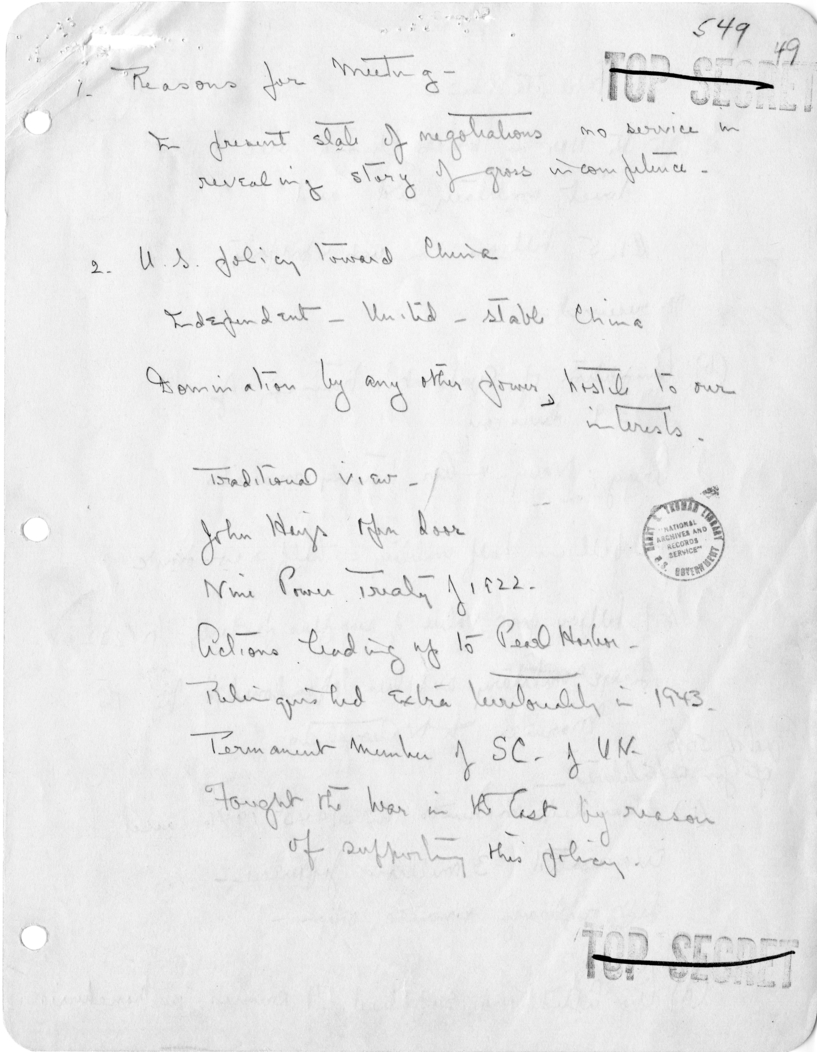 549
49
TOP SECRET
1. Reasons for Meeting -
In present state of negotiations no service in
revealing story of gross incompetence -
2. U.S. policy toward China
Independent - United - stable China
Domination by any other power, hostile to our
interests.
Traditional view -
John Hays Open Door
Nine Power Treaty of 1922.
Actions leading up to Pearl Harbor -
Relinquished Extra territoriality in 1943.
Permanent Member of SC. of UN.
Fought the war in the East by reason
of supporting this policy.
HARRY S. TRUMAN LIBRARY
NATIONAL
ARCHIVES AND
RECORDS
SERVICE
U.S. GOVERNMENT
TOP SECRET